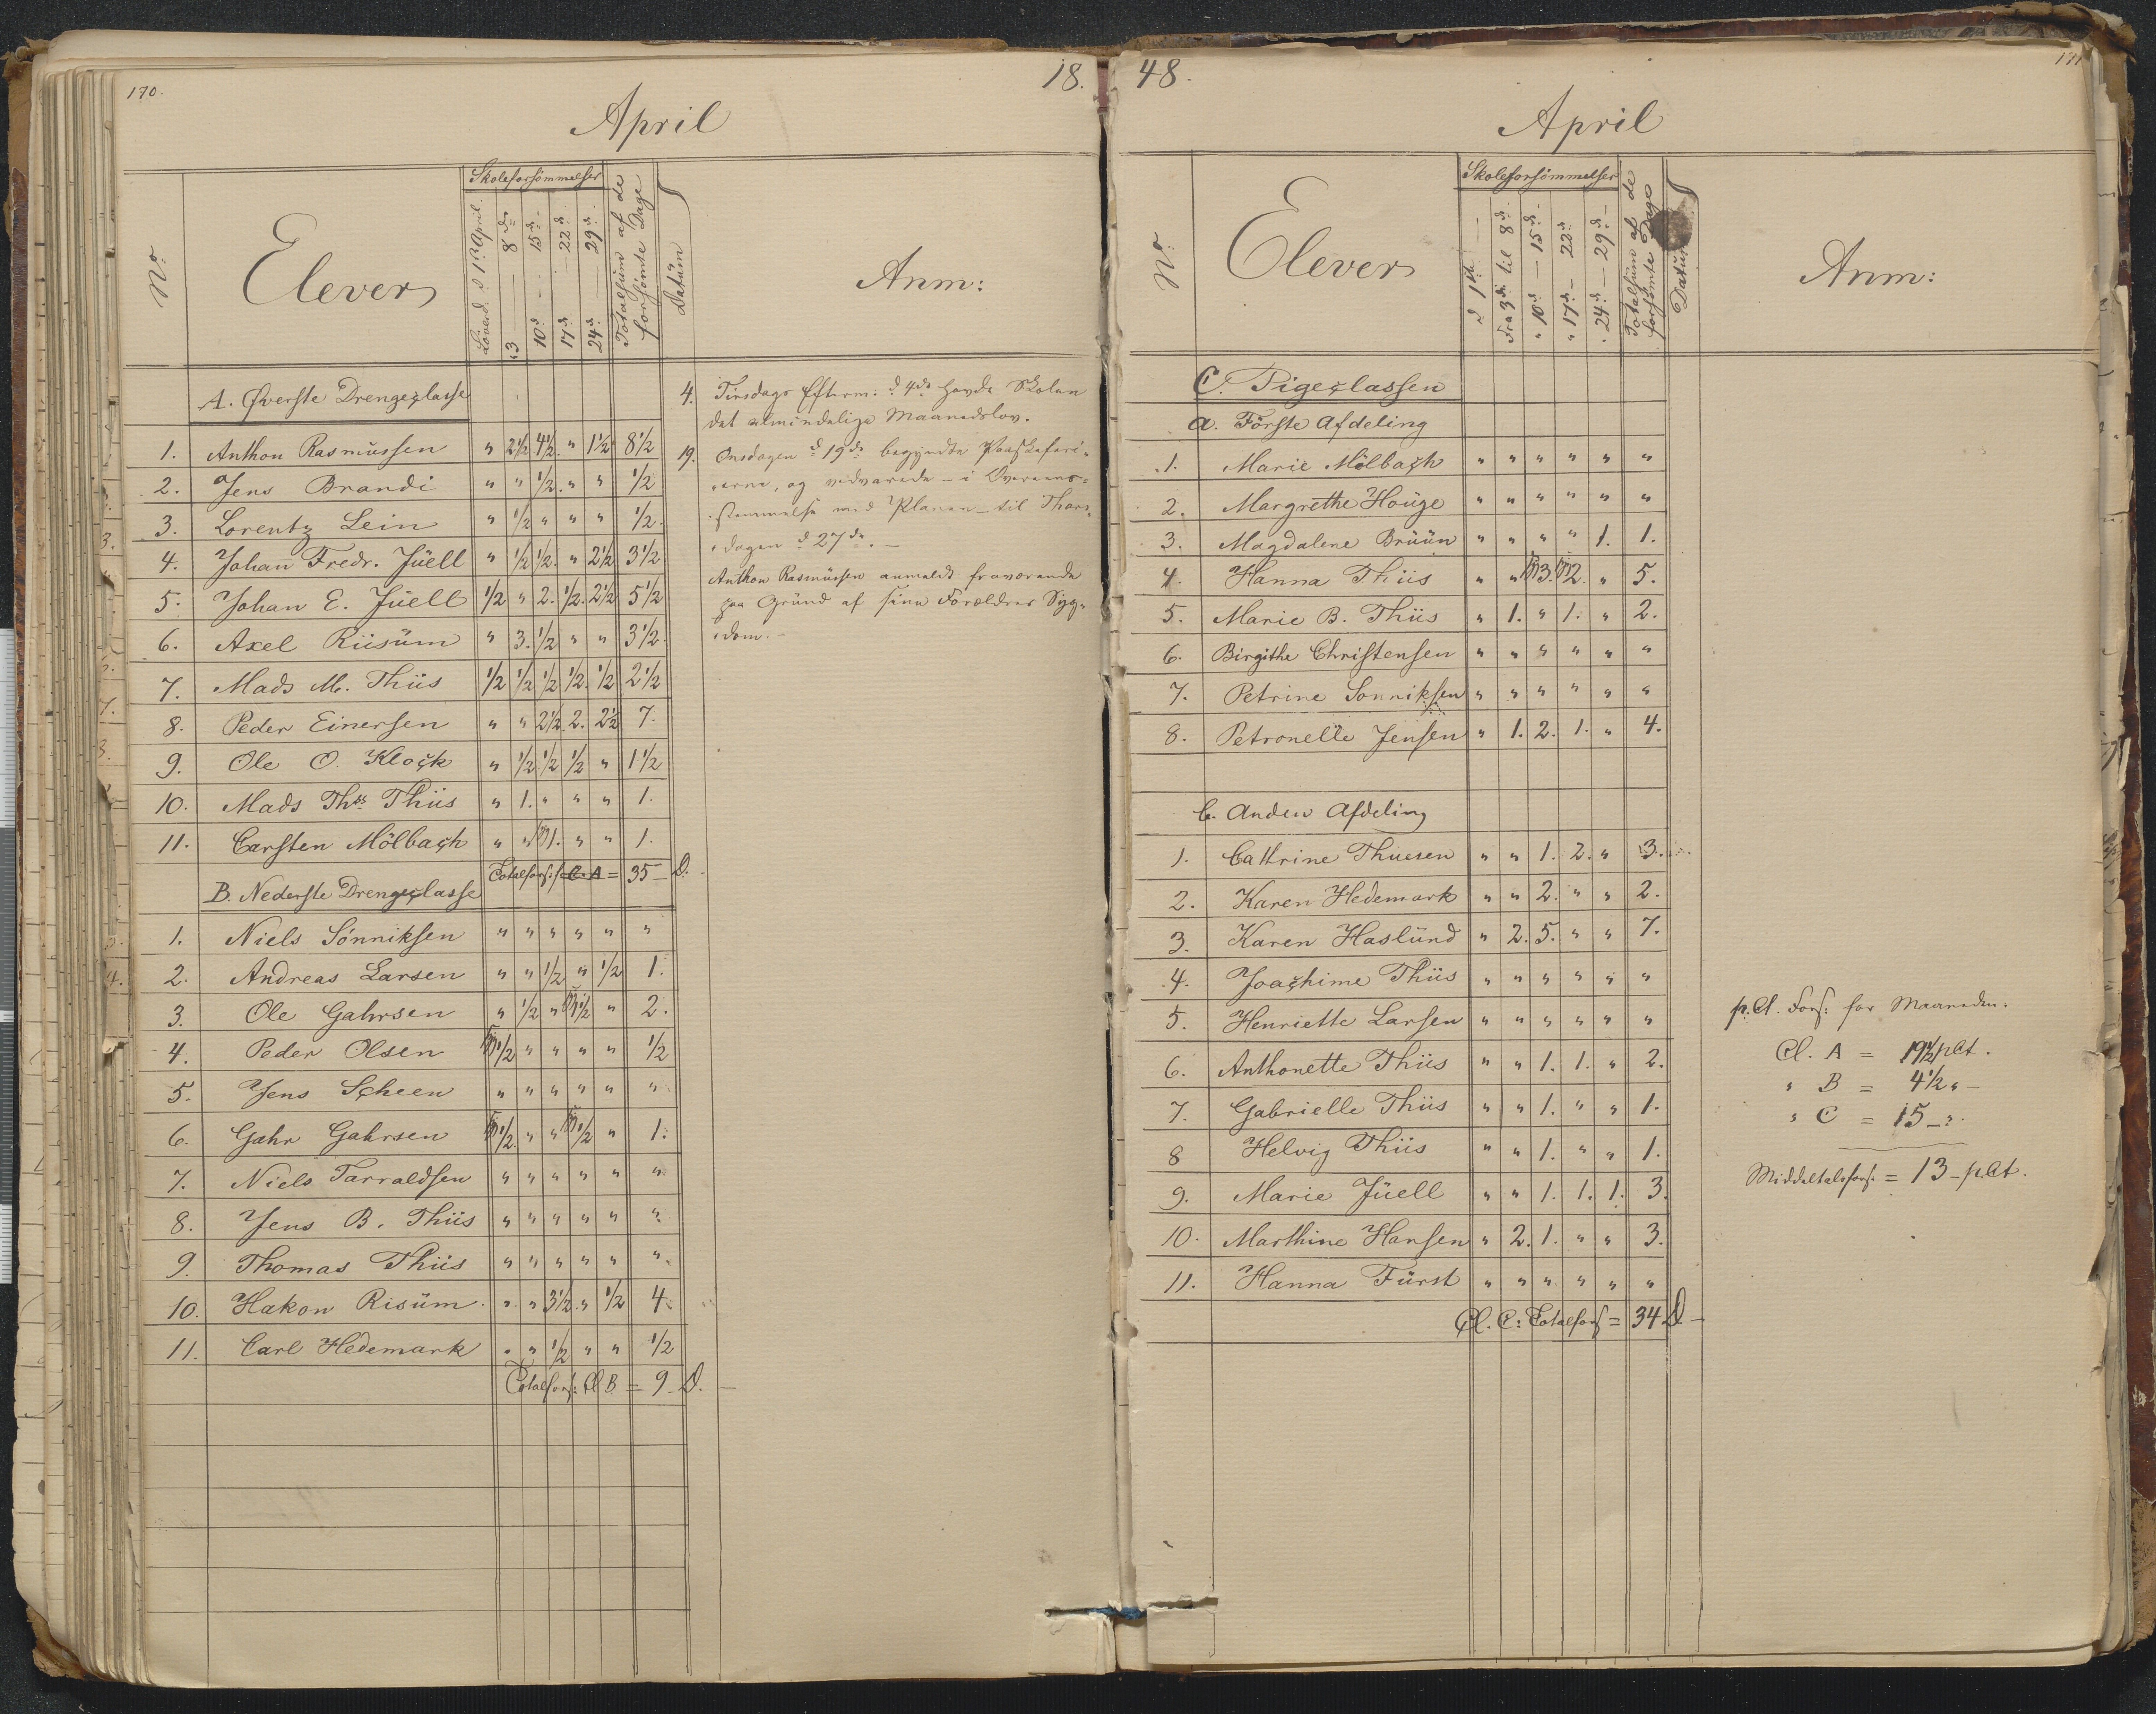 170.
18.
April
No:
Elever
Skoleforsömmelser
Löverd. d 1ste April.
3 — 8de
10d — 15de
17d — 22d
24d — 29d
Totalsüm af de forsömte Dage
Datüm
Anm:
A. Øverste Drengeclasse
1. Anthon Rasmüssen " 2½ 4½. " 1½ 8½
2. Jens Brandi " " ½. " " ½
3. Lorentz Lein " ½ " " " ½.
4. Johan Fredr. Jüell " ½ ½. " 2½ 3½
5. Johan E. Jüell ½ " 2. ½. 2½ 5½
6. Axel Riisüm " 3. ½ " " 3½.
7. Mads M. Thiis ½ ½ ½ ½. ½ 2½
8. Peder Einersen " " 2½. 2. 2½ 7.
9. Ole O. Klock " ½ ½ ½ " 1½
10. Mads Ths Thiis " 1. " " " 1.
11. Carsten Mölbach " " 1. " " 1.
Totalfors: Cl. A = 35 — D.
B. Nederste Drengeclasse
1. Niels Sönniksen " " " " " "
2. Andreas Larsen " " ½ " ½ 1.
3. Ole Gahrsen " ½ " 1½ " 2.
4. Peder Olsen ½ " " " " ½
5. Jens Scheen " " " " " "
6. Gahr Gahrsen ½ " " ½ " 1.
7. Niels Tarraldsen " " " " " "
8. Jens B. Thiis " " " " " "
9. Thomas Thiis " " " " " "
10. Hakon Risüm. " " 3½. " ½ 4.
11. Carl Hedemark " " ½ " " ½
Totalfors: Cl B. = 9 — D. —
4. Tirsdags Efterm: d 4de havde Skolen
det almindelige Maanedslov.
19. Onsdagen d 19de begyndte Paaskeferi-
erne, og vedvarede — i Overeens-
stemmelse med Planen — til Thors-
dagen d 27de. —
Anthon Rasmüssen anmeldt fraværende
paa Gründ af sine Forældres Syg-
dom. —
48.
171
April
No:
Elever
Skoleforsömmelser
d 1ste —
Fra 3die til 8d.
" 10d — 15d.
" 17d — 22d.
" 24d — 29d. —
Totalsüm af de forsömte Dage
Datüm
Anm:
C. Pigeclassen
a. Förste Afdeling
1. Marie Mölbach " " " " " "
2. Margrethe Houge " " " " " "
3. Magdalene Brüün " " " " 1. 1.
4. Hanna Thiis " " 3. 2. " 5.
5. Marie B. Thiis " 1. " 1. " 2.
6. Birgithe Christensen " " " " " "
7. Petrine Sonniksen " " " " " "
8. Petronelle Jensen " 1. 2. 1. " 4.
b. Anden Afdeling
1. Cathrine Thuesen " " 1. 2. " 3.
2. Karen Hedemark " " 2. " " 2.
3. Karen Haslünd " 2. 5. " " 7.
4. Joachime Thiis " " " " " "
5. Henriette Larsen " " " " " "
6. Anthonette Thiis " " 1. 1. " 2.
7. Gabrielle Thiis " " 1. " " 1.
8 Helvig Thiis " " 1. " " 1.
9. Marie Jüell " " 1. 1. 1. 3.
10. Marthine Hansen " 2. 1. " " 3.
11. Hanna Fürst " " " " " "
Cl. C: Totalfors = 34 D. —
p.Ct. Fors: for Maaneden:
Cl. A = 19½ pCt.
" B = 4½ " —
" C = 15 — ".
Middeltalsfors: = 13 — pCt.